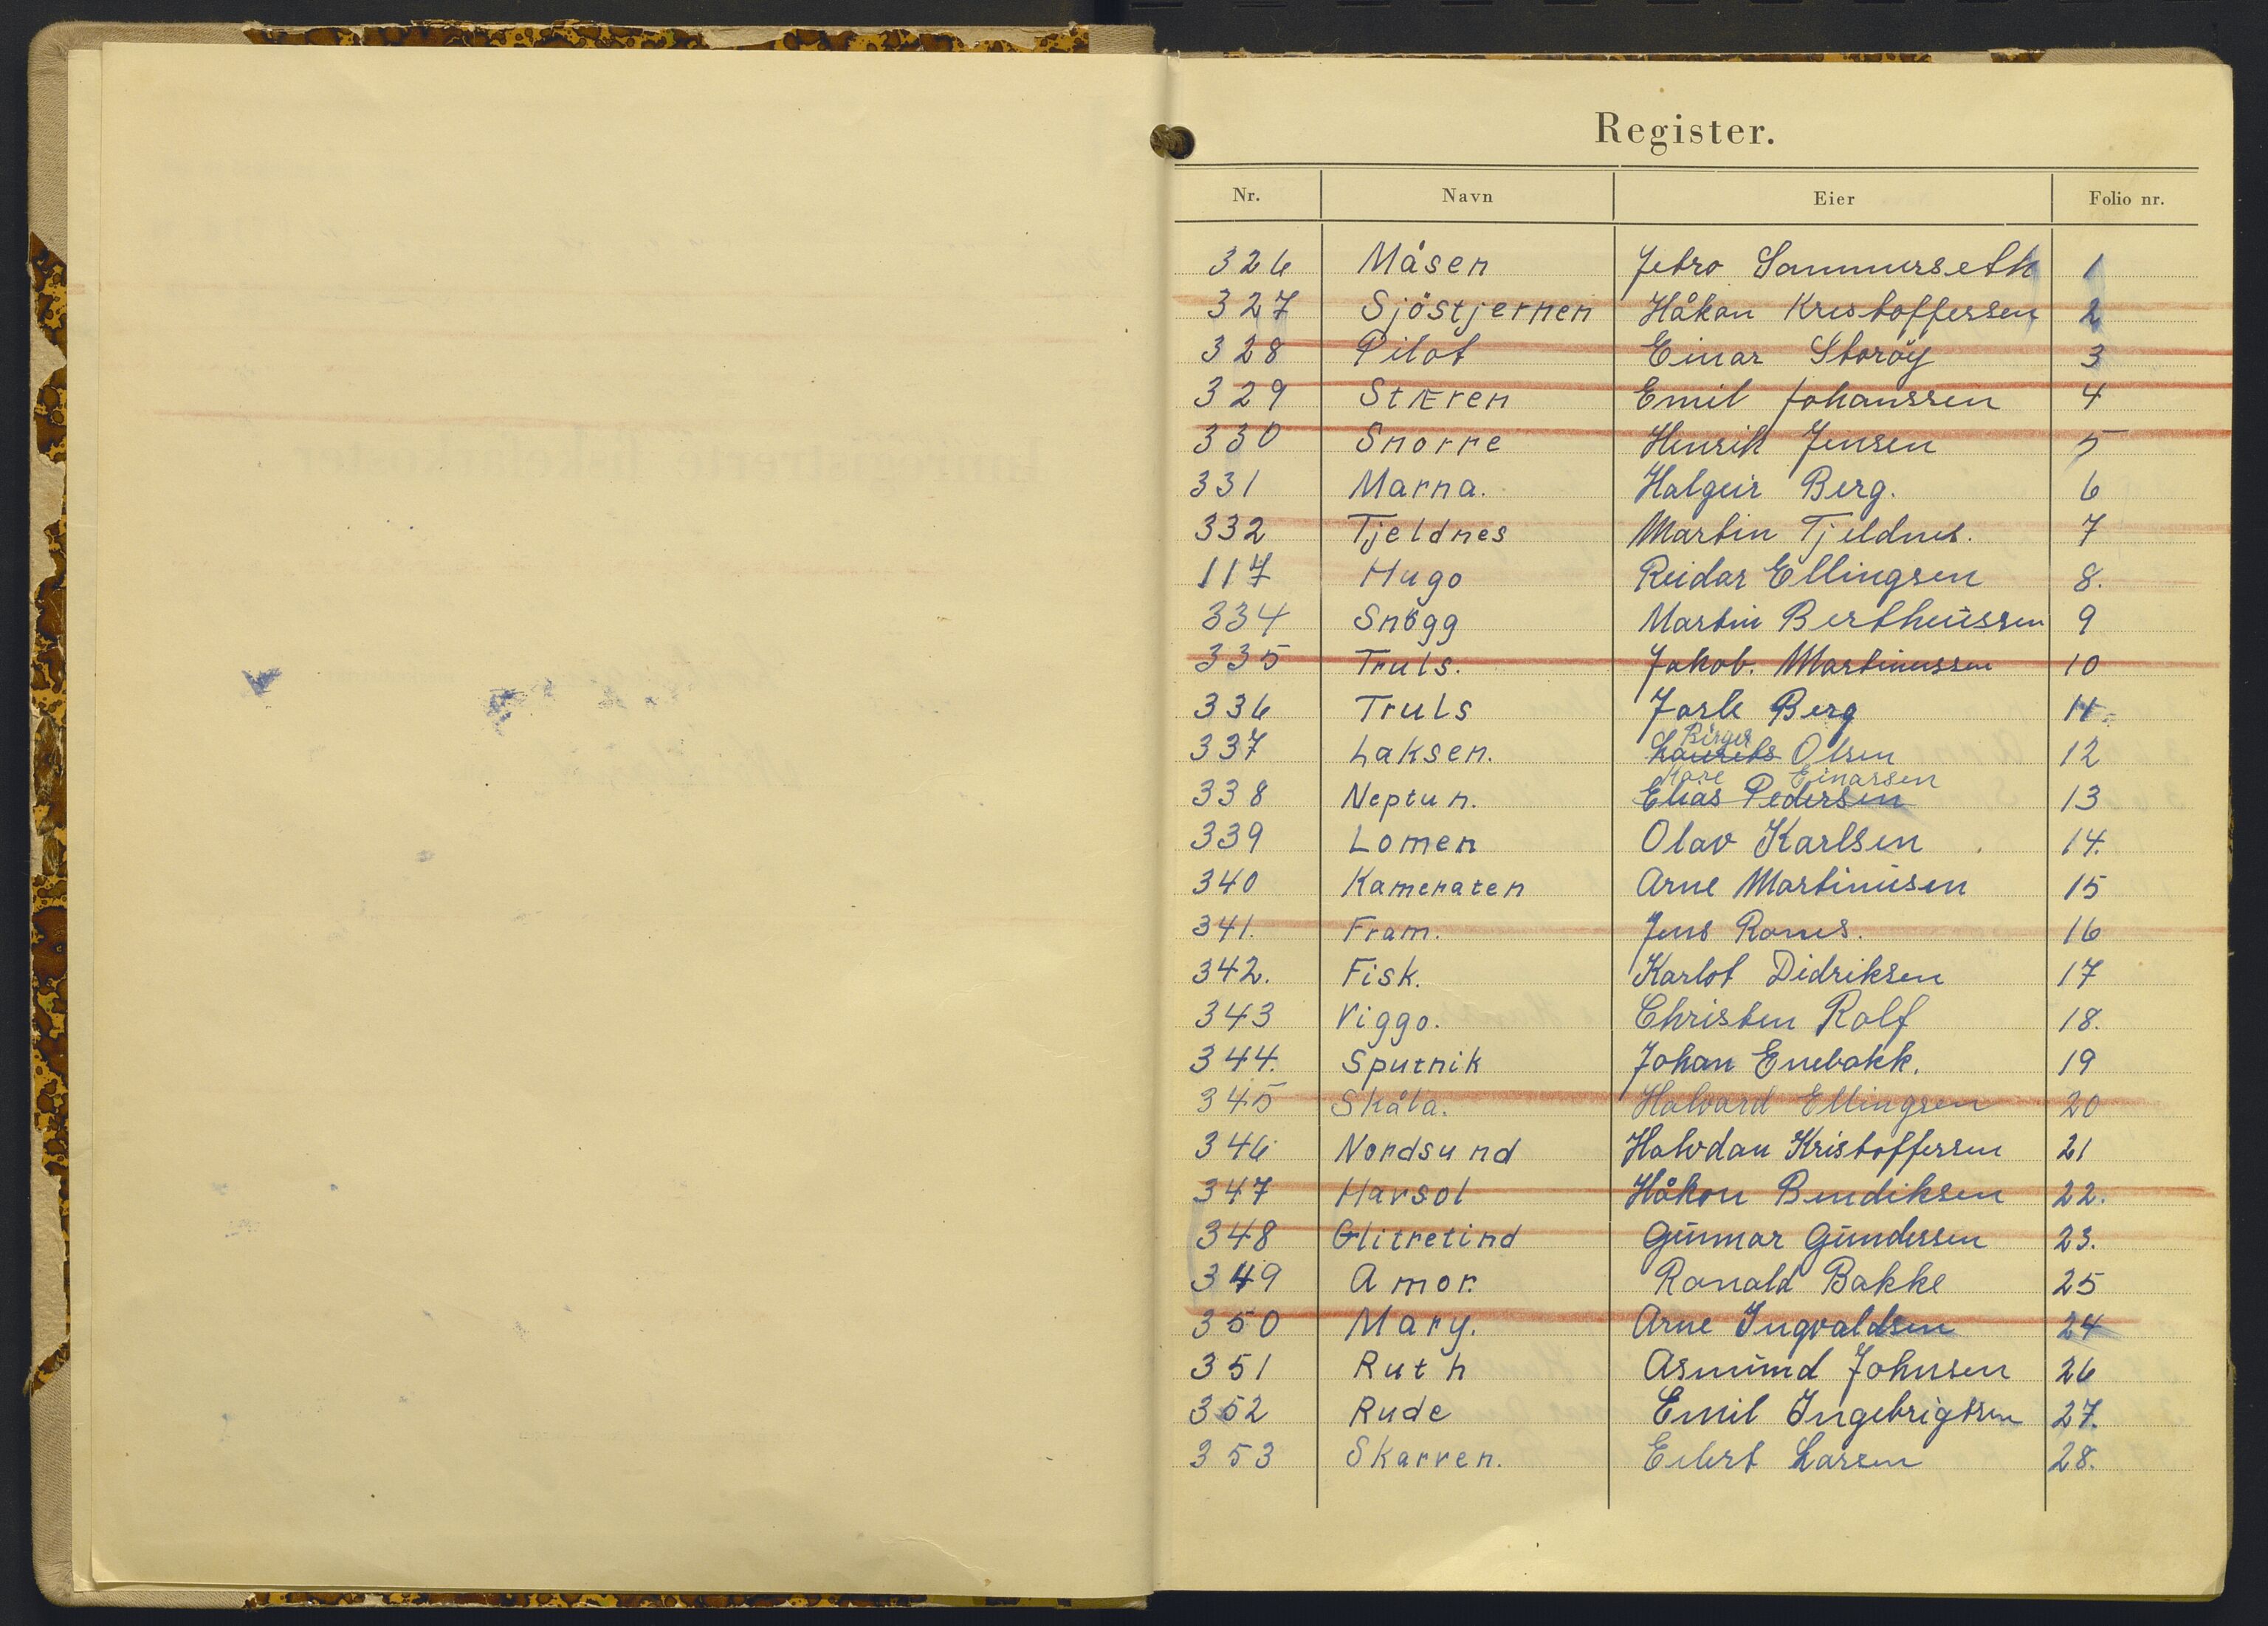 Register.
Nr. Navn Eier Folio nr.
326 Måsen Jebro Sommerseth 1
327 Sjöstjernen Håkon Kristoffersen 2
328 Pilot Einar Storöy 3
329 Stæren Emil Johanssen 4
330 Snorre Henrik Jensen 5
331 Marna. Halgeir Berg. 6
332 Tjeldnes Martin Tjeldnes. 7
117 Hugo Reidar Ellingsen 8.
334 Snögg Martin Bertheussen 9
335 Truls. Jakob. Martinussen 10
336 Truls Jarle Berg 11
Birger
337 Laksen. Laurits Olsen 12
Kåre Einarsen
338 Neptun. Elias Pedersen 13
339 Lomen Olav Karlsen 14.
340 Kameraten Arne Martinusen 15
341. Fram. Jens 16
342. Fisk. Karlot Didriksen 17
343 Viggo. Christen Rolf 18.
344. Sputnik Johan Enebakk. 19
345 Skåla. Halvard Ellingsen 20
346 Nordsund Halvdan Kristoffersen 21
347 Havsol Håkon Bendiksen 22.
348 Glitretind Gunnar Gundersen 23.
349 Amor. Ronald Bakke 25
350 Mary. Arne Ingvaldsen 24
351 Ruth Asmund Johnsen 26
352 Rude Emil Ingebrigtsen 27.
353 Skarven. Eilert Larsen 28.